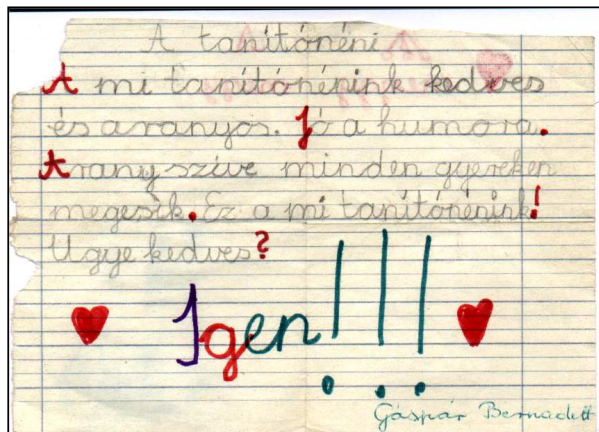 A tanítónéni
A mi tanítónénink kedves
és aranyos. Jó a humora.
Arany szíve minden gyereken
megesik. Ez a mi tanítónénink!
Ugye kedves?
Igen!!!
Gáspár Bernadett